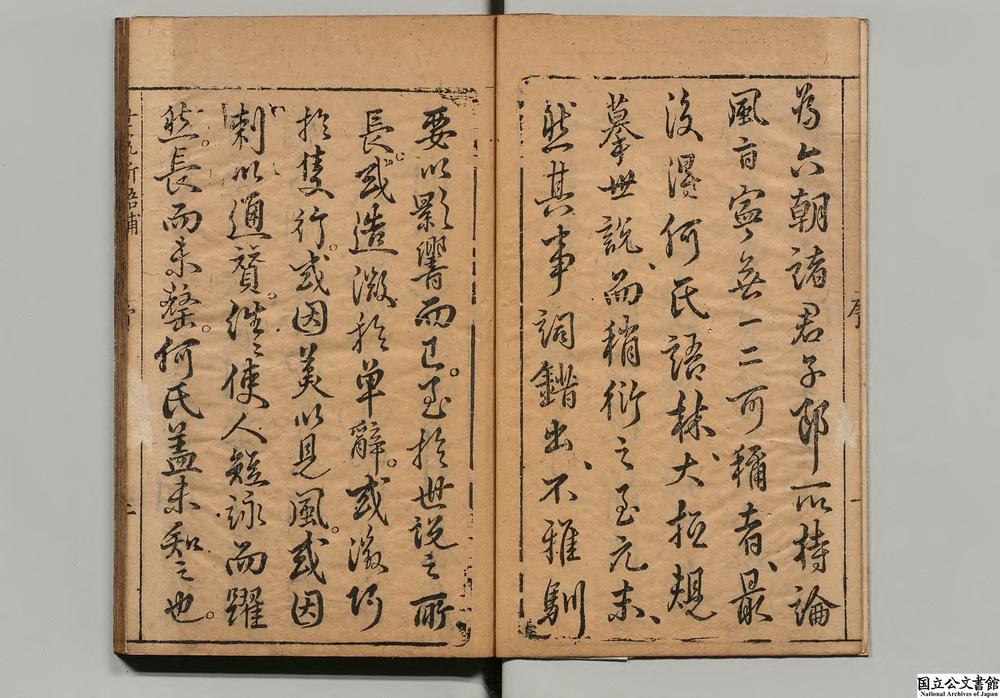 序
一
為六朝諸君子即所持論
風旨寧無一二可稱者、最
後得何氏語林、大抵規
摹世說、而稍衍之至元末、
然其事詞錯出、不雅馴
要以影響而已。至於世說之所
長。或造微於單辭。或徵巧
於隻行。或因美以見風。或因
刺以通贊。往々使人短詠而躍
然。長而未罄。何氏蓋未知之也。
国立公文書館
National Archives of Japan